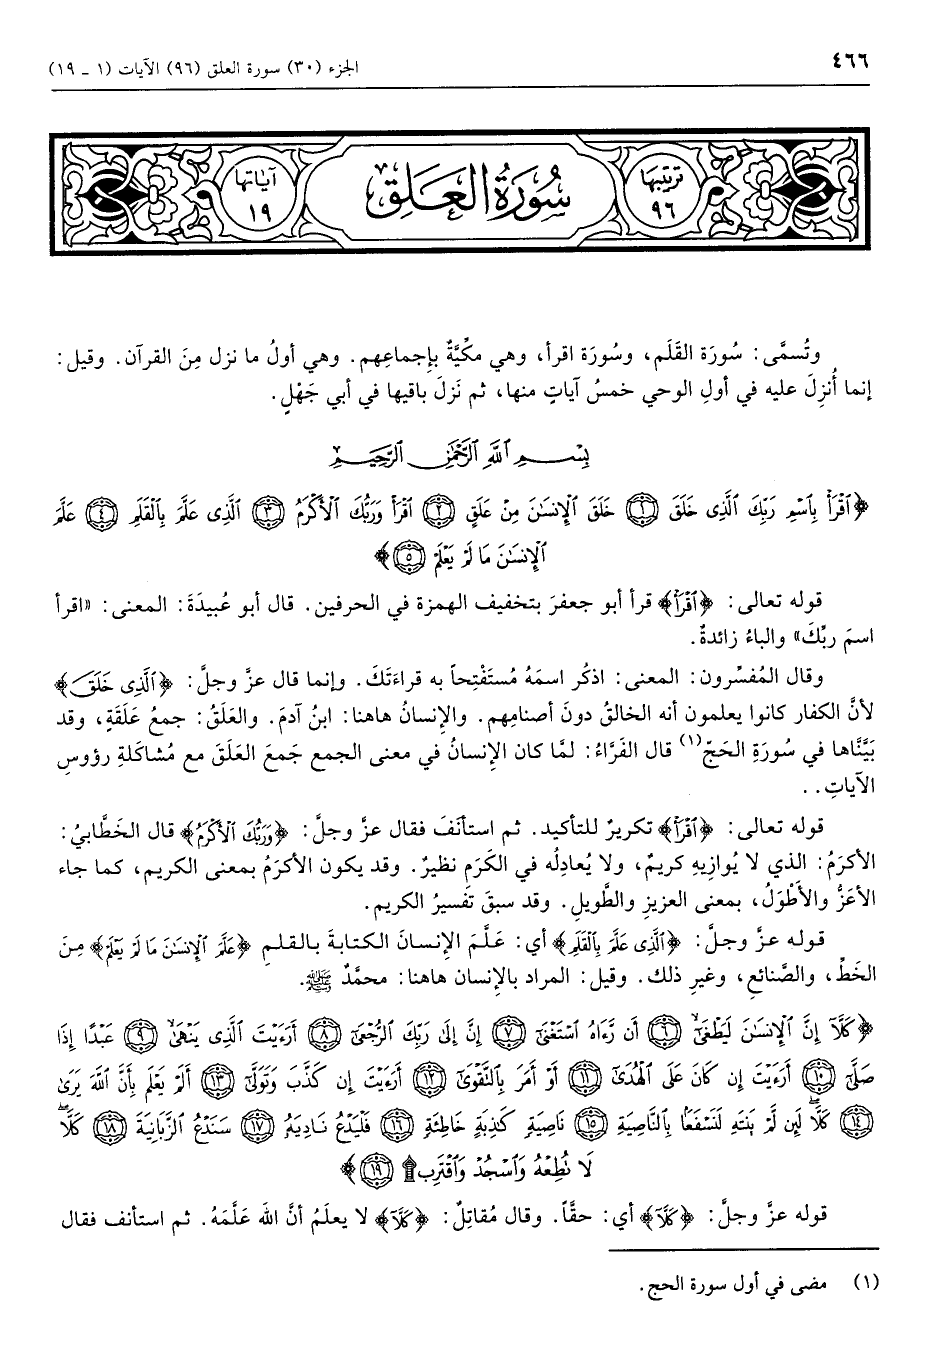 ٤٦٦
الجزء (٣٠) سورة العلق (٩٦) الآيات (١ ـ ١٩)
ترتيبها ٩٦
سُورَةُ العَلَقِ
آياتها ١٩
وتُسمَّى: سُورَة القَلَم، وسُورَة اقرأ، وهي مكيَّةٌ بإجماعِهم. وهي أولُ ما نزل مِنَ القرآن. وقيل:
إنما أُنزِلَ عليه في أولِ الوحي خمسُ آياتٍ منها، ثم نَزلَ باقيها في أبي جَهْلٍ.
بِسْمِ ٱللَّهِ ٱلرَّحْمَٰنِ ٱلرَّحِيمِ
﴿ٱقْرَأْ بِٱسْمِ رَبِّكَ ٱلَّذِى خَلَقَ ۝١ خَلَقَ ٱلْإِنسَٰنَ مِنْ عَلَقٍ ۝٢ ٱقْرَأْ وَرَبُّكَ ٱلْأَكْرَمُ ۝٣ ٱلَّذِى عَلَّمَ بِٱلْقَلَمِ ۝٤ عَلَّمَ
ٱلْإِنسَٰنَ مَا لَمْ يَعْلَمْ ۝٥﴾
قوله تعالى: ﴿ٱقْرَأْ﴾ قرأ أبو جعفرَ بتخفيف الهمزة في الحرفين. قال أبو عُبيدَةَ: المعنى: «اقرأ
اسمَ ربِّكَ» والباءُ زائدةٌ.
وقال المُفسِّرون: المعنى: اذكُر اسمَهُ مُستَفْتِحاً به قراءَتَكَ. وإنما قال عزَّ وجلَّ: ﴿ٱلَّذِى خَلَقَ﴾
لأنَّ الكفار كانوا يعلمون أنه الخالقُ دونَ أصنامِهم. والإنسانُ هاهنا: ابنُ آدمَ. والعَلَقُ: جمعُ عَلَقَةٍ، وقد
بَيَّنَّاها في سُورَةِ الحَجّ(١) قال الفَرَّاءُ: لمَّا كان الإنسانُ في معنى الجمع جَمعَ العَلَقَ مع مُشاكَلةِ رؤوسِ
الآياتِ..
قوله تعالى: ﴿ٱقْرَأْ﴾ تكريرٌ للتأكيد. ثم استأنَفَ فقال عزَّ وجلَّ: ﴿وَرَبُّكَ ٱلْأَكْرَمُ﴾ قال الخَطَّابيُ:
الأكرَمُ: الذي لا يُوازِيهِ كريمٌ، ولا يُعادِلُه في الكَرَمِ نظيرٌ. وقد يكون الأكرَمُ بمعنى الكريم، كما جاء
الأعَزُّ والأطْوَلُ، بمعنى العزيزِ والطَّويلِ. وقد سبقَ تَفسيرُ الكريم.
قوله عزَّ وجلَّ: ﴿ٱلَّذِى عَلَّمَ بِٱلْقَلَمِ﴾ أي: عَلَّمَ الإنسانَ الكتابةَ بالقلمِ ﴿عَلَّمَ ٱلْإِنسَٰنَ مَا لَمْ يَعْلَمْ﴾ مِنَ
الخَطِّ، والصَّنائعِ، وغيرِ ذلك. وقيل: المراد بالإنسان هاهنا: محمَّدٌ ﷺ.
﴿كَلَّآ إِنَّ ٱلْإِنسَٰنَ لَيَطْغَىٰٓ ۝٦ أَن رَّءَاهُ ٱسْتَغْنَىٰٓ ۝٧ إِنَّ إِلَىٰ رَبِّكَ ٱلرُّجْعَىٰٓ ۝٨ أَرَءَيْتَ ٱلَّذِى يَنْهَىٰ ۝٩ عَبْدًا إِذَا
صَلَّىٰٓ ۝١٠ أَرَءَيْتَ إِن كَانَ عَلَى ٱلْهُدَىٰٓ ۝١١ أَوْ أَمَرَ بِٱلتَّقْوَىٰٓ ۝١٢ أَرَءَيْتَ إِن كَذَّبَ وَتَوَلَّىٰٓ ۝١٣ أَلَمْ يَعْلَم بِأَنَّ ٱللَّهَ يَرَىٰ
۝١٤ كَلَّا لَئِن لَّمْ يَنتَهِ لَنَسْفَعًۢا بِٱلنَّاصِيَةِ ۝١٥ نَاصِيَةٍ كَٰذِبَةٍ خَاطِئَةٍ ۝١٦ فَلْيَدْعُ نَادِيَهُۥ ۝١٧ سَنَدْعُ ٱلزَّبَانِيَةَ ۝١٨ كَلَّا
لَا تُطِعْهُ وَٱسْجُدْ وَٱقْتَرِب۩ ۝١٩﴾
قوله عزَّ وجلَّ: ﴿كَلَّآ﴾ أي: حقَّاً. وقال مُقاتِلٌ: ﴿كَلَّآ﴾ لا يعلَمُ أنَّ الله عَلَّمَهُ. ثم استأنف فقال
(١) مضى في أول سورة الحج.